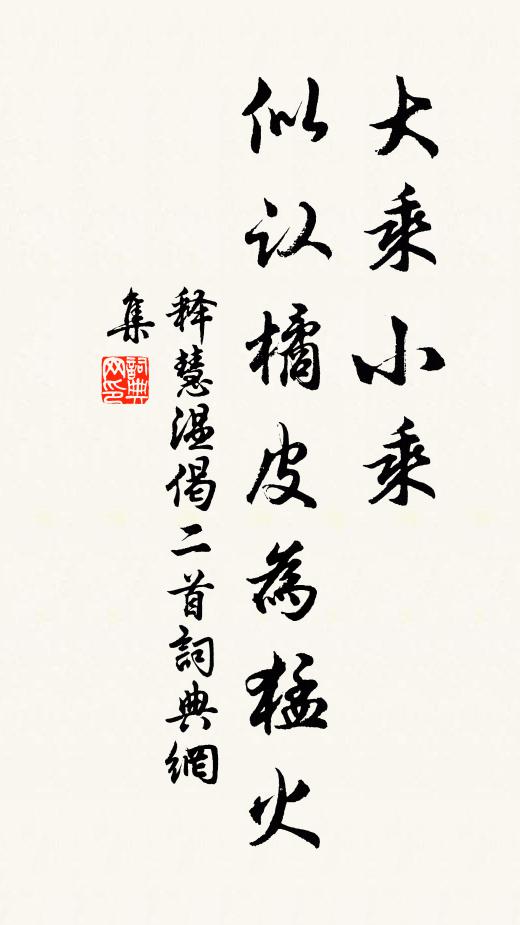 大乘小乘
似认橘皮為猛火
释慧温偈二首詞典網
集
詞典
网印